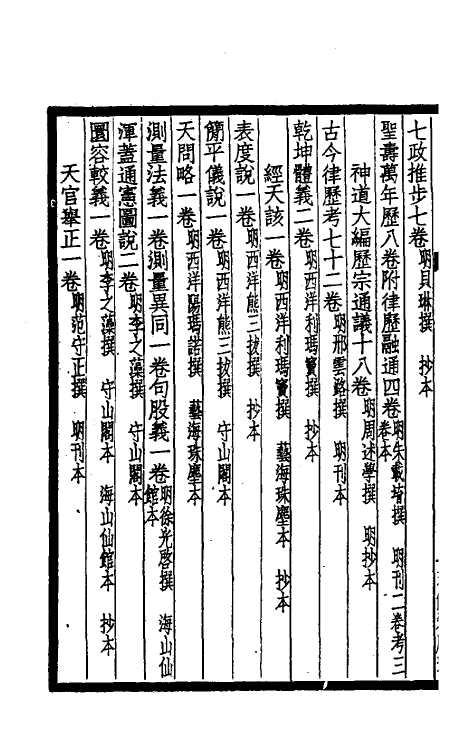 七政推步七卷明貝琳撰 抄本
聖壽萬年歷八卷附律歷融通四卷明朱載堉撰 明刊二卷考三卷本
神道大編歷宗通議十八卷明周述學撰 明抄本
古今律歷考七十二卷明邢雲路撰 明刊本
乾坤體義二卷明西洋利瑪竇撰 抄本
經天該一卷明西洋利瑪竇撰 藝海珠塵本 抄本
表度說一卷明西洋熊三拔撰 抄本
簡平儀說一卷明西洋熊三拔撰 守山閣本
天問略一卷明西洋陽瑪諾撰 藝海珠塵本
測量法義一卷測量異同一卷句股義一卷明徐光啓撰 海山仙館本
渾蓋通憲圖說二卷明李之藻撰 守山閣本
圜容較義一卷明李之藻撰 守山閣本 海山仙館本 抄本
天官舉正一卷明范守正撰 明刊本